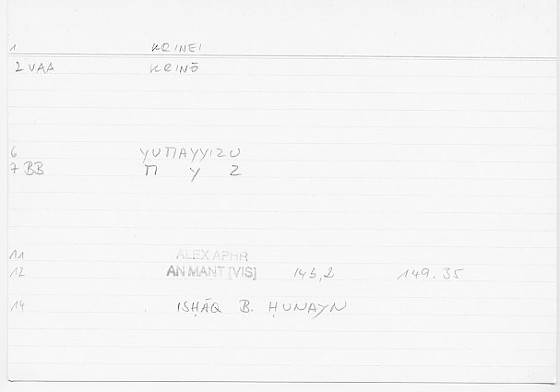 1 KRINEI
2 VAA KRINŌ
6 YUMAYYIZU
7 BB M Y Z
11 ALEX APHR
12 AN MANT [VIS] 145,2 149.35
14 ISḤĀQ B. ḤUNAYN